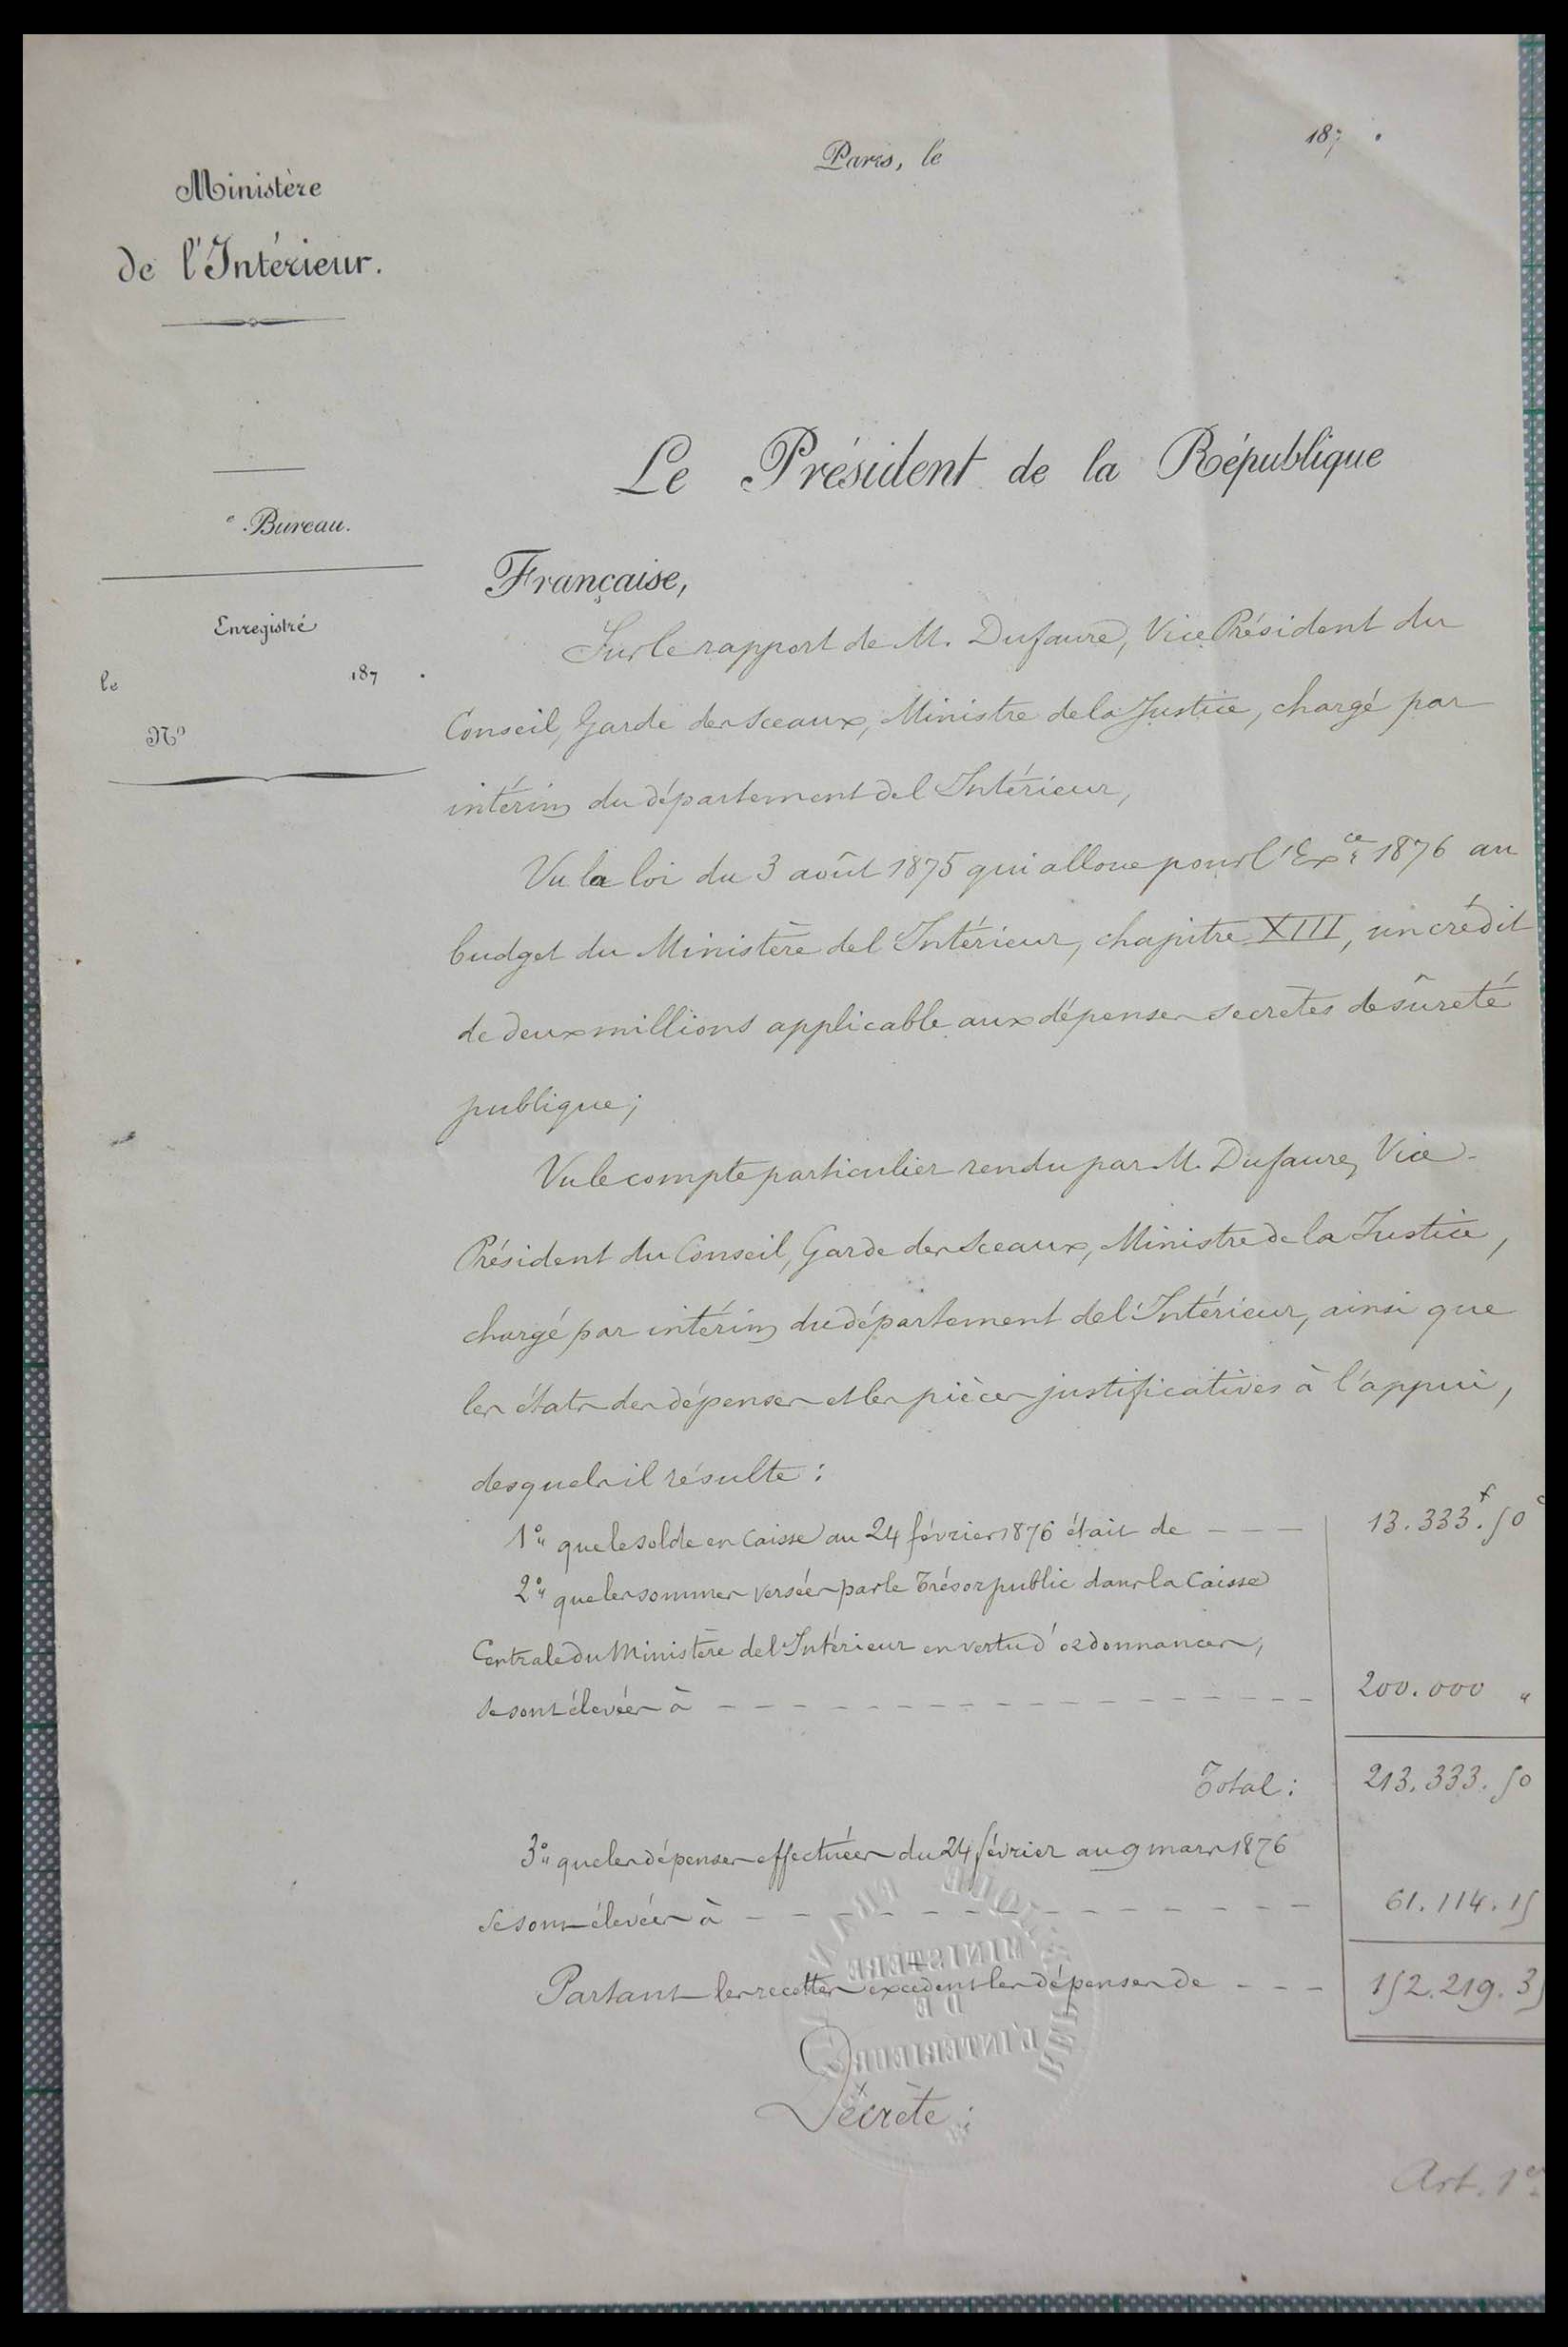 Paris, le 187 .
Ministère
de l'Intérieur.
e Bureau.
Enregistré
le 187 .
No
Le Président de la République
Française,
Sur le rapport de M. Dufaure, Vice Président du
Conseil, Garde des Sceaux, Ministre de la Justice, chargé par
intérim du département de l'Intérieur,
Vu la loi du 3 août 1875 qui alloue pour l'Exce 1876 au
budget du Ministère de l'Intérieur, chapitre XIII, un crédit
de deux millions applicable aux dépenses secrètes de sûreté
publique;
Vu le compte particulier rendu par M. Dufaure, Vice-
Président du Conseil, Garde des Sceaux, Ministre de la Justice,
chargé par intérim du département de l'Intérieur, ainsi que
les états des dépenses et les pièces justificatives à l'appui,
desquels il résulte:
1° que le solde en Caisse au 24 février 1876 était de - - - 13.333f.50c
2° que les sommes versées par le Trésor public dans la Caisse
Centrale du Ministère de l'Intérieur en vertu d'ordonnances,
se sont élevées à - - - - - - - - - - - - - - - - - 200.000 "
Total: 213.333.50
3° que les dépenses effectuées du 24 février au 9 mars 1876
se sont élevées à - - - - - - - - - - - - - - - - 61.114.15
Partant les recettes excèdent les dépenses de - - - 152.219.35
MINISTÈRE
DE
L'INTÉRIEUR
Décrète:
Art. 1er